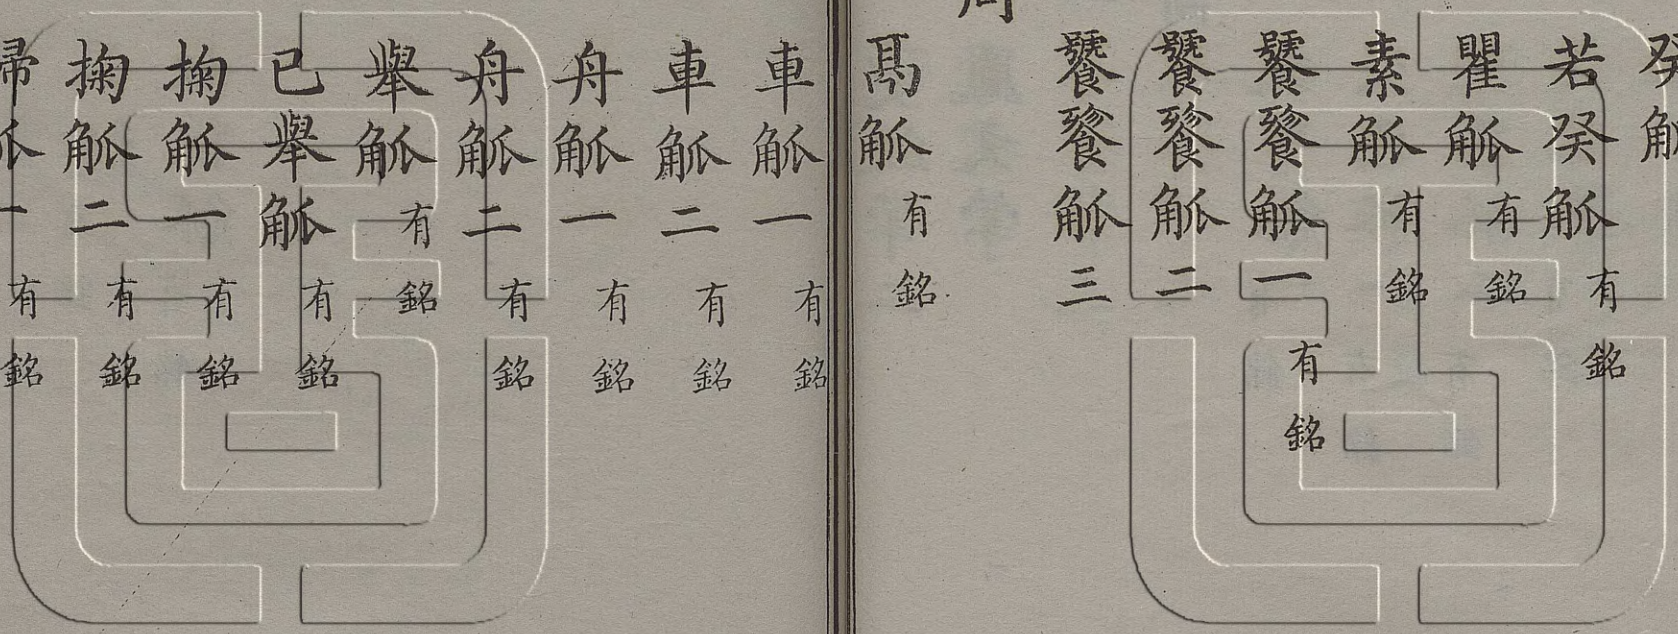 若癸觚有銘
瞿觚有銘
素觚有銘
饕餮觚一有銘
饕餮觚二
饕餮觚三
鬲觚有銘
車觚一有銘
車觚二有銘
舟觚一有銘
舟觚二有銘
舉觚有銘
已舉觚有銘
掬觚一有銘
掬觚二有銘
觚一有銘